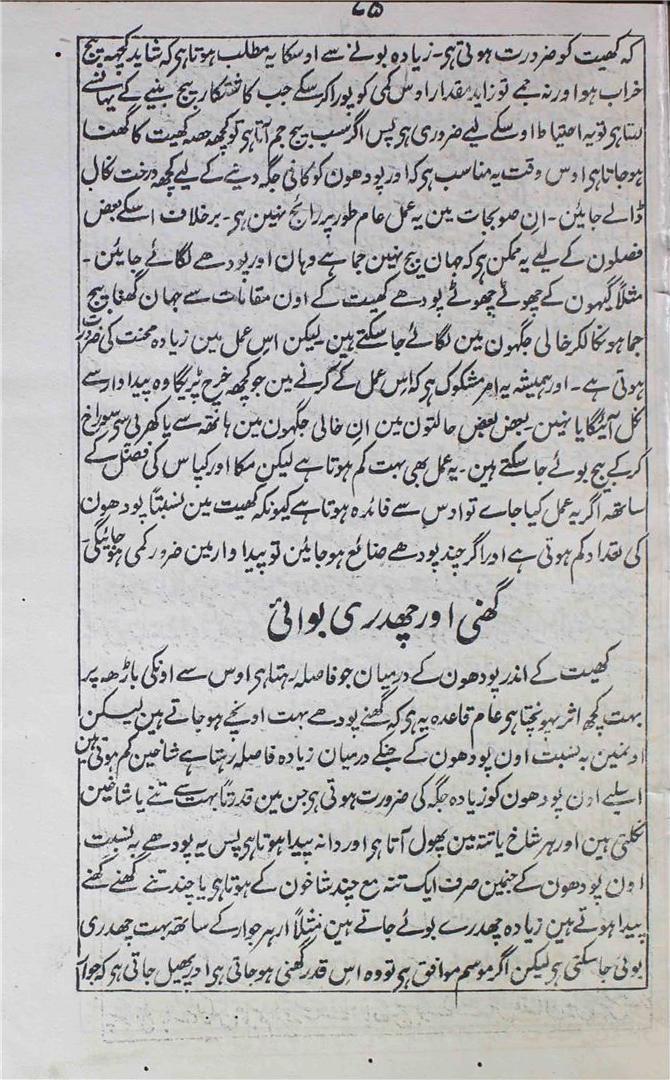 ۷۵
کہ کھیت کو ضرورت ہوتی ہی۔ زیادہ بونے سے اوسکا یہ مطلب ہوتا ہی کہ شاید کچھہ بیج
خراب ہو اور نہ جمے تو زاید مقدار اوس کمی کو پورا کر سکے جب کاشتکار بیج بنیے کے یہانسے
لیتا ہی تو یہ احتیاط اوسکے لیے ضروری ہی پس اگر سب بیج جم آتا ہی تو کچھہ حصہ کھیت کا گھنا
ہو جاتا ہی اوس وقت یہ مناسب ہی کہ اور پودھون کو کافی جگہ دینے کے لیے کچھہ درخت نکال
ڈالے جایئن۔ ان صوبجات مین یہ عمل عام طور پر رائج نہین ہی۔ برخلاف اسکے بعض
فصلون کے لیے یہ ممکن ہی کہ جہان بیج نہین جما ہے وہان اور پودھے لگائے جایئن۔
مثلاً گیہون کے چھوٹے چھوٹے پودھے کھیت کے اون مقامات سے جہان گھنا بیج
جما ہو نکالکر خالی جگہون مین لگائے جا سکتے ہین۔ لیکن اس عمل مین زیادہ محنت کی ضرورت
ہوتی ہے۔ اور ہمیشہ یہ امر مشکوک ہی کہ اس عمل کے کرنے مین جو کچھہ خرچ پڑیگا وہ پیداوار سے
نکل آئیگا یا نہین۔ بعض بعض حالتون مین ان خالی جگہون مین ہاتھہ سے یا کھرپی سی سوراخ
کر کے بیج بوئے جا سکتے ہین۔ یہ عمل بھی بہت کم ہوتا ہے لیکن مکا اور کپاس کی فصل کے
ساتھہ اگر یہ عمل کیا جاے تو اوس سے فائدہ ہوتا ہے کیونکہ کھیت مین نسبتاً پودھون
کی تعداد کم ہوتی ہے اور اگر چند پودھے ضائع ہو جایئن تو پیداوار مین ضرور کمی ہو جائیگی۔
گھنی اور چھدری بوائی
کھیت کے اندر پودھون کے درمیان جو فاصلہ رہتا ہی اوس سے اونکی باڑھہ پر
بہت کچھہ اثر پہونچتا ہی عام قاعدہ یہ ہی کہ گھنے پودھے بہت اونچے ہو جاتے ہین لیکن
اونمین بہ نسبت اون پودھون کے جنکے درمیان زیادہ فاصلہ رہتا ہے شاخین کم ہوتی ہین
اسلیے اون پودھون کو زیادہ جگہ کی ضرورت ہوتی ہی جن مین قدرتاً بہت سے تنے یا شاخین
نکلتی ہین اور ہر شاخ یا تنہ مین پھول آتا ہی اور دانہ پیدا ہوتا ہی پس یہ پودھے بہ نسبت
اون پودھون کے جنمین صرف ایک تنہ مع چند شاخون کے ہوتا ہی یا چند تنے گھنے گھنے
پیدا ہوتے ہین زیادہ چھدرے بوئے جاتے ہین مثلاً ارہر جوار کے ساتھہ بہت چھدری
بوئی جا سکتی ہی لیکن اگر موسم موافق ہی تو وہ اس قدر گھنی ہو جاتی ہی اور پھیل جاتی ہی کہ جوار